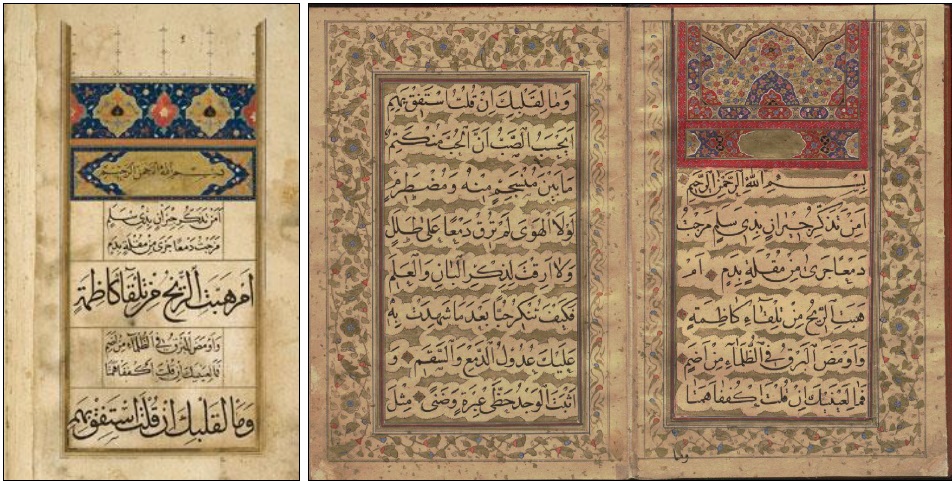 بسم الله الرحمن الرحيم
اَمِنْ تَذَكُّرِ جِيرَانٍ بِذِي سَلَمٍ
مَزَجْتَ دَمْعًا جَرَى مِنْ مُقْلَةٍ بِدَمِ
اَمْ هَبَّتِ الرِّيحُ مِنْ تِلْقَاءِ كَاظِمَةٍ
وَاَوْمَضَ الْبَرْقُ فِي الظَّلْمَاءِ مِنْ اِضَمِ
فَمَا لِعَيْنَيْكَ اِنْ قُلْتَ اكْفُفَا هَمَتَا
وَمَا لِقَلْبِكَ اِنْ قُلْتَ اسْتَفِقْ يَهِمِ
بِسْمِ اللهِ الرَّحْمٰنِ الرَّحِيمِ
اَمِنْ تَذَكُّرِ جِيرَانٍ بِذِي سَلَمٍ مَزَجْتَ
دَمْعًا جَرَى مِنْ مُقْلَةٍ بِدَمِ اَمْ
هَبَّتِ الرِّيحُ مِنْ تِلْقَاءِ كَاظِمَةٍ
وَاَوْمَضَ الْبَرْقُ فِي الظَّلْمَاءِ مِنْ اِضَمِ
فَمَا لِعَيْنَيْكَ اِنْ قُلْتَ اكْفُفَا هَمَتَا
وما
وَمَا لِقَلْبِكَ اِنْ قُلْتَ اسْتَفِقْ يَهِمِ
اَيَحْسَبُ الصَّبُّ اَنَّ الْحُبَّ مُنْكَتِمٌ
مَا بَيْنَ مُنْسَجِمٍ مِنْهُ وَمُضْطَرِمِ
لَوْلَا الْهَوَى لَمْ تُرِقْ دَمْعًا عَلَى طَلَلٍ
وَلَا اَرِقْتَ لِذِكْرِ الْبَانِ وَالْعَلَمِ
فَكَيْفَ تُنْكِرُ حُبًّا بَعْدَ مَا شَهِدَتْ بِهِ
عَلَيْكَ عُدُولُ الدَّمْعِ وَالسَّقَمِ وَ
اَثْبَتَ الْوَجْدُ خَطَّيْ عَبْرَةٍ وَضَنًى مِثْلَ